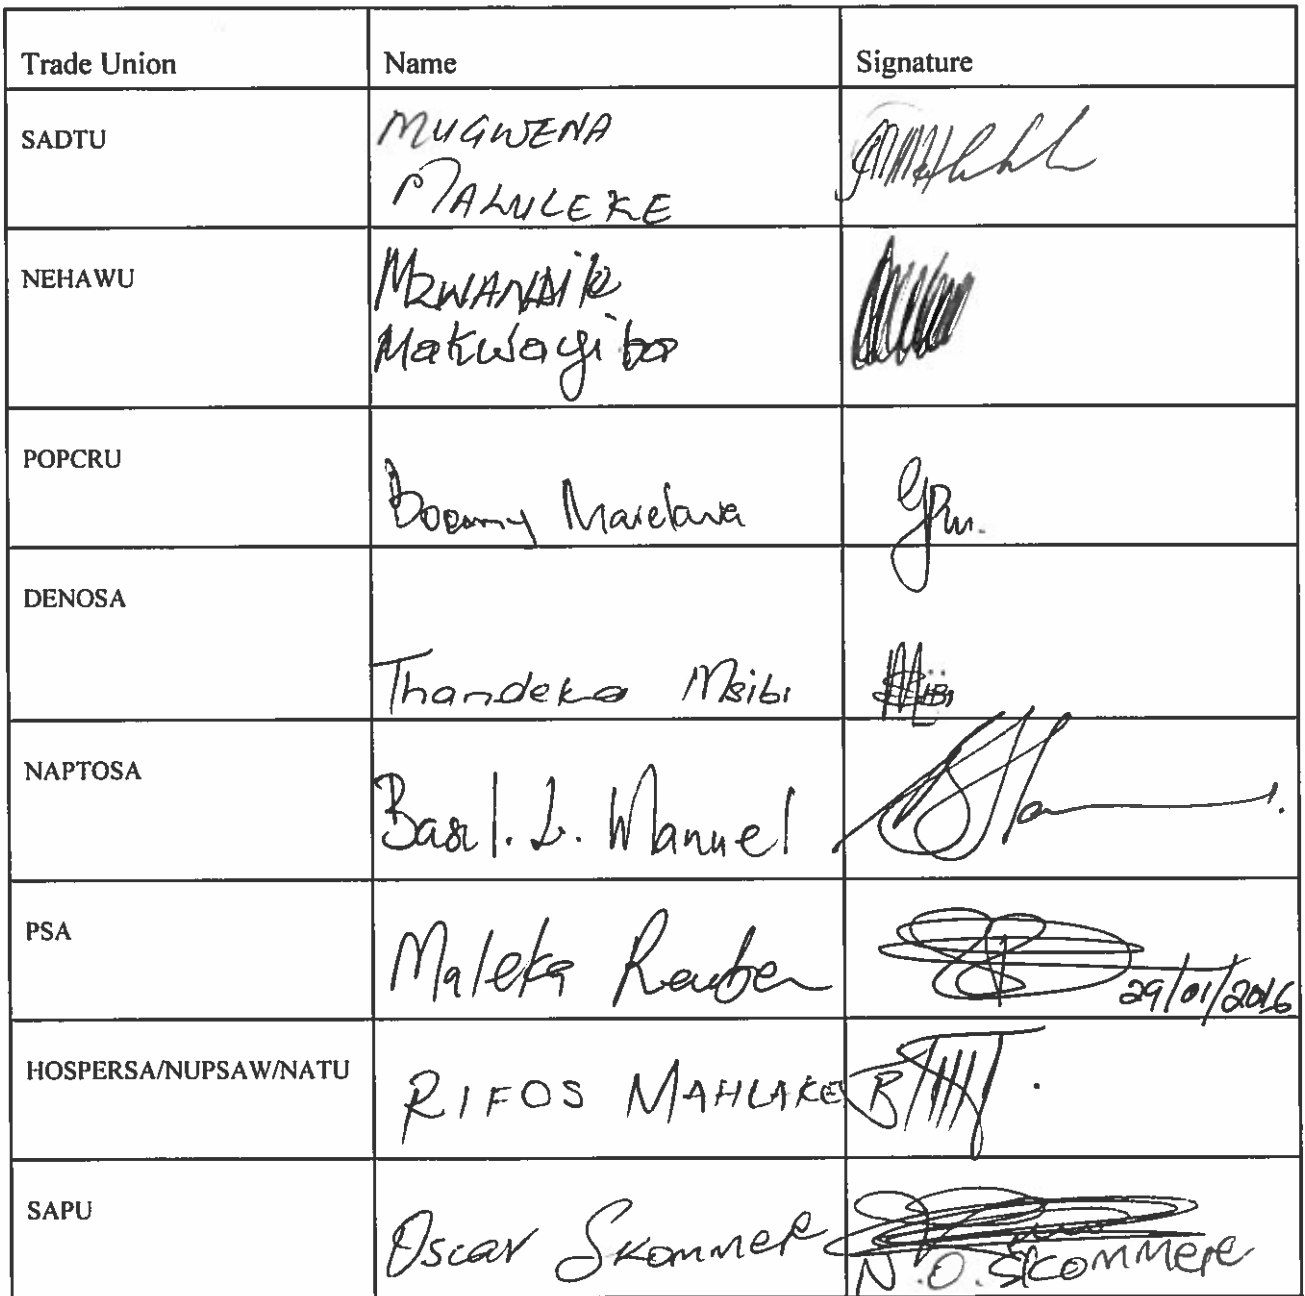 Trade Union Name Signature
SADTU MUGWENA
MALULEKE
NEHAWU
POPCRU
DENOSA Thandeka Msibi
NAPTOSA Basil. L. Manuel
PSA Maleka Reuben 29/01/2016
HOSPERSA/NUPSAW/NATU RIFOS MAHLAKE
SAPU Oscar Skommere
N.O. SKOMMERE